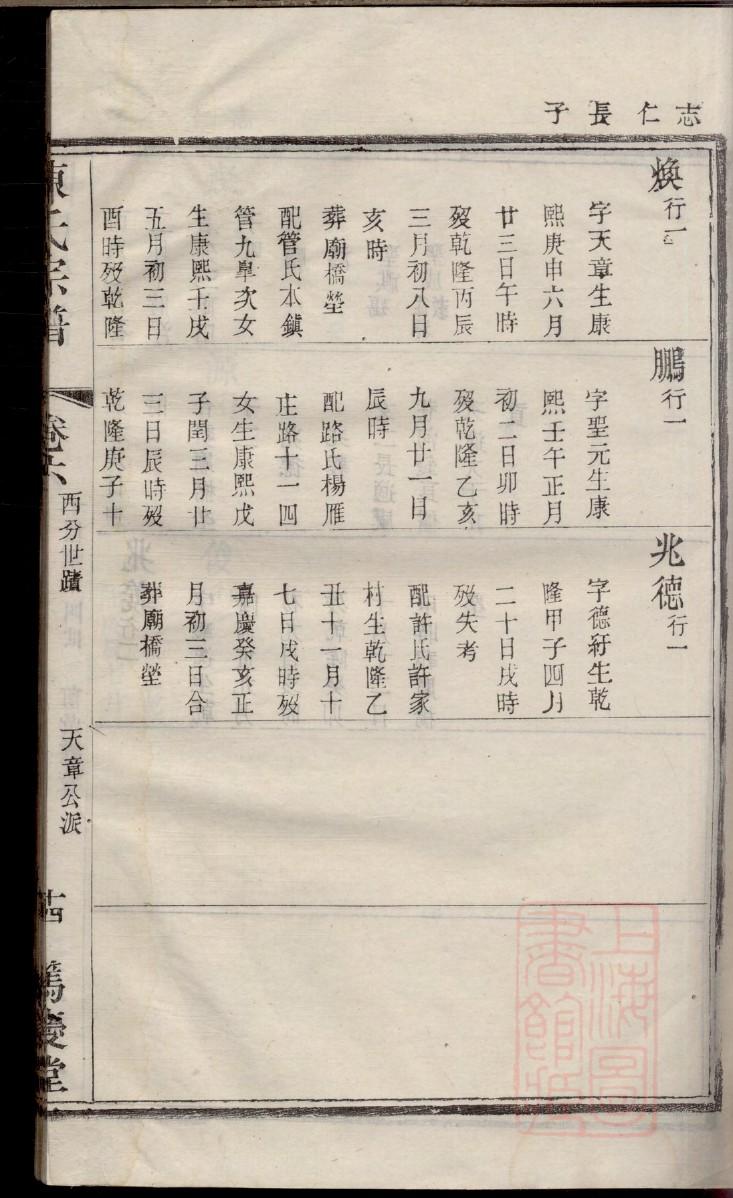 志仁長子
煥行一
字天章生康
熙庚申六月
廿三日午時
歿乾隆丙辰
三月初八日
亥時
葬廟橋塋
配管氏本鎮
管九臯次女
生康熙壬戌
五月初三日
酉時歿乾隆
鵬行一
字聖元生康
熙壬午正月
初二日卯時
歿乾隆乙亥
九月廿一日
辰時
配路氏楊雁
庄路十一四
女生康熙戊
子閏三月廿
三日辰時歿
乾隆庚子十
兆德行一
字德紆生乾
隆甲子四月
二十日戌時
歿失考
配許氏許家
村生乾隆乙
丑十一月十
七日戌時歿
嘉慶癸亥正
月初三日合
葬廟橋塋
陳氏宗譜
卷六
西分世蹟
天章公派
十四
篤慶堂
上海圖書館藏